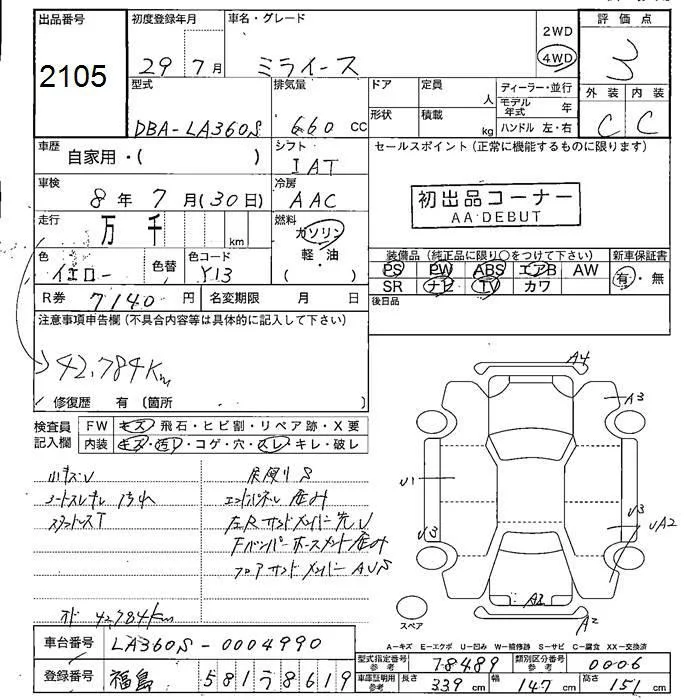 出品番号 初度登録年月 車名・グレード 評価点
2105
29年7月 ミライース
2WD
4WD
3
型式 排気量 ドア 定員 人 ディーラー・並行 外装 内装
DBA-LA360S 660cc
形状 積載 kg モデル年式 年
ハンドル 左・右
C C
車歴 自家用・( ) シフト IAT
セールスポイント (正常に機能するものに限ります)
車検 8年7月(30日) 冷房 AAC
初出品コーナー
AA DEBUT
走行 万 千 km 燃料 ガソリン
軽・油
( )
色 イエロー 色替 色コード Y13
装備品 (純正品に限り○をつけて下さい) 新車保証書
PS PW ABS エアB AW 有・無
SR ナビ TV カワ
R券 7140円 名変期限 月 日
後日品
注意事項申告欄 (不具合内容等は具体的に記入して下さい)
42,784Km
修復歴 有 (箇所 )
検査員記入欄
FW キズ・飛石・ヒビ割・リペア跡・X要
内装 キズ・汚レ・コゲ・穴・スレ・キレ・破レ
小キズU
シートスレキレ汚れ
スタットレスT
床廻りS
エンドパネル歪み
左Rサイドメンバー先U
Fバンパーホースメント歪み
フロアサイドメンバーAUS
オド 42784Km
A4
A3
U1
U3
U3
UA2
A2
A2
スペア
A-キズ E-エクボ U-凹み W-補修跡 S-サビ C-腐食 XX-交換済
車台番号 LA360S-0004990
型式指定番号 参考 18489 類別区分番号 参考 0006
登録番号 福島 581 8619
車庫証明用 参考 長さ 339cm 幅 147cm 高さ 151cm